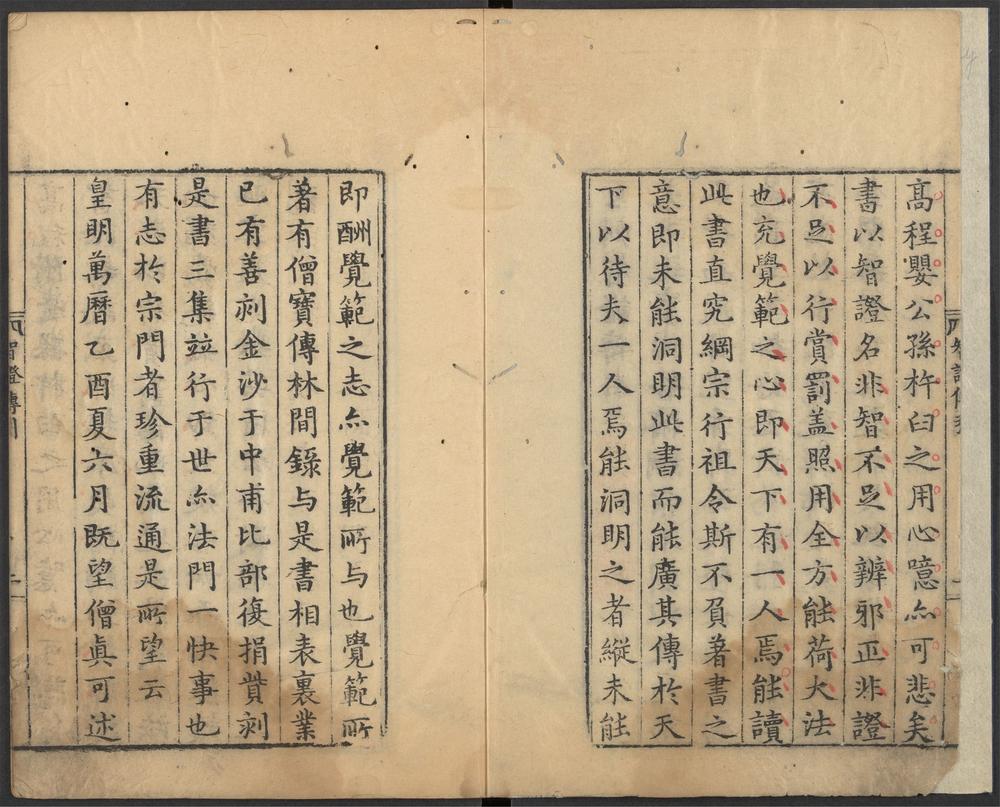 高程嬰公孫杵臼之用心噫亦可悲矣
書以智證名非智不足以辨邪正非證
不足以行賞罰盖照用全方能荷大法
也充覺範之心即天下有一人焉能讀
此書直究綱宗行祖令斯不負著書之
意即未能洞明此書而能廣其傳於天
下以待夫一人焉能洞明之者縱未能
即酬覺範之志亦覺範所与也覺範所
著有僧寶傳林間錄与是書相表裏業
已有善刻金沙于中甫比部復捐貲刻
是書三集並行于世亦法門一快事也
有志於宗門者珍重流通是所望云
皇明萬曆乙酉夏六月既望僧真可述
智證傳